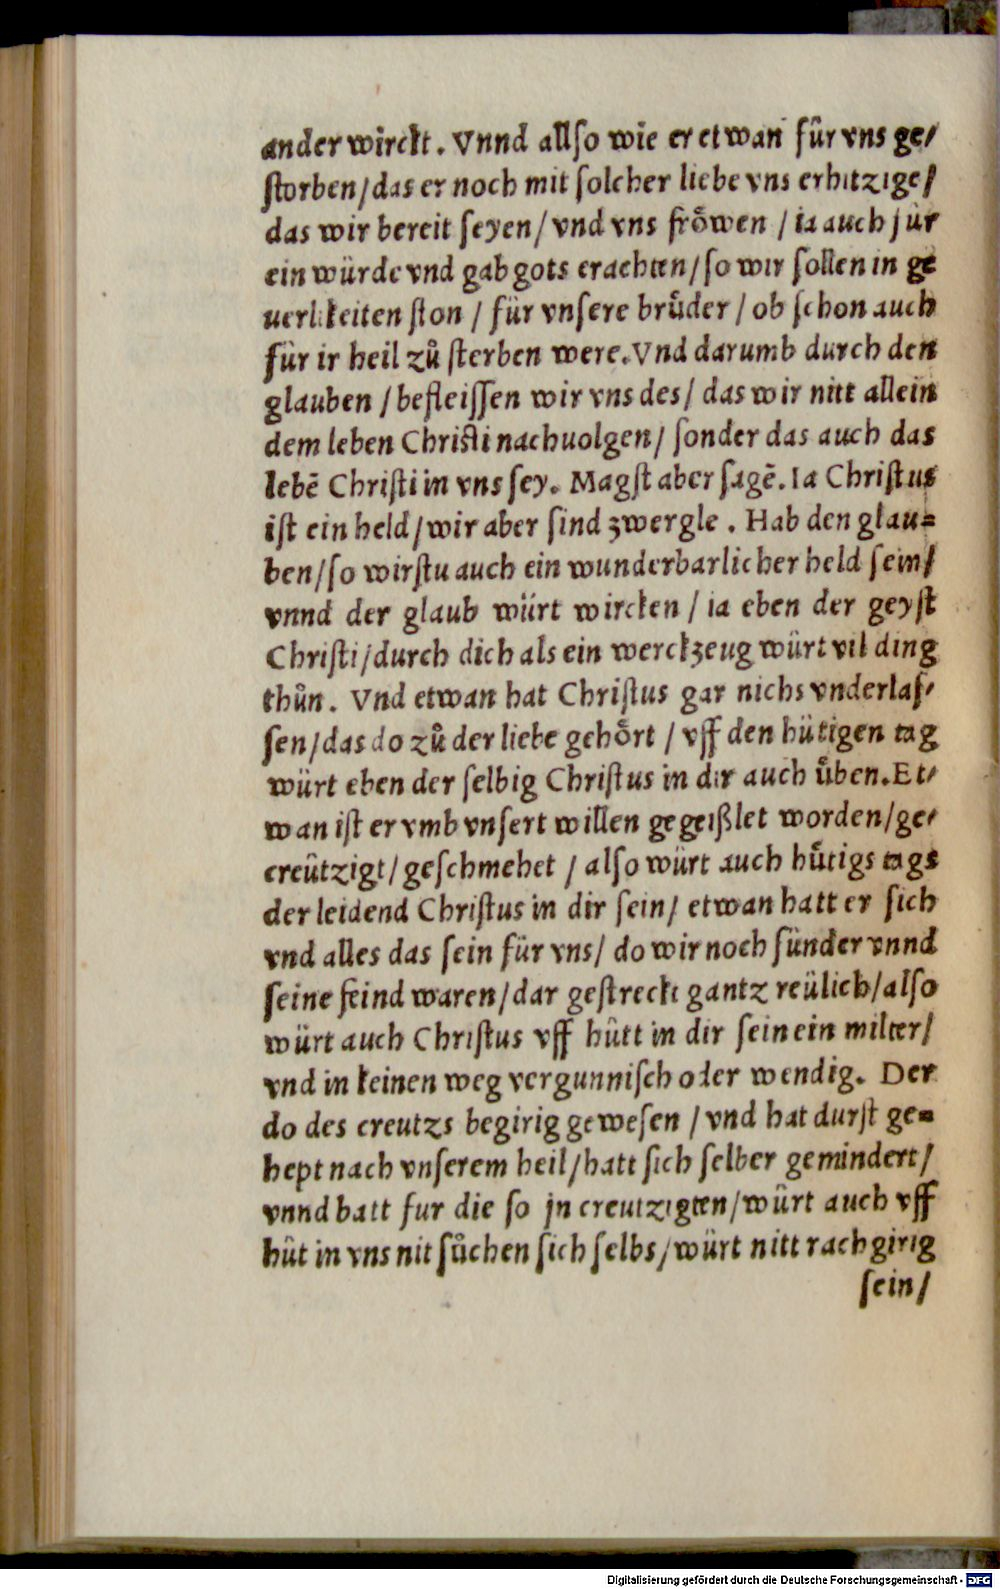 ander wirckt. Vnnd allſo wie er etwan fûr vns ge/
ſtorben/das er noch mit ſolcher liebe vns erhitzige/
das wir bereit ſeyen/ vnd vns froͤwen / ia auch für
ein würde vnd gab gots erachten/ſo wir ſollen in ge
uerlikeiten ſton / für vnſere bruͤder / ob ſchon auch
für ir heil zů ſterben were.Vnd darumb durch den
glauben / befleiſſen wir vns des/ das wir nitt allein
dem leben Chriſti nachuolgen/ ſonder das auch das
lebē Chriſti in vns ſey. Magſt aber ſagē. Ia Chriſtus
iſt ein held/wir aber ſind zwergle . Hab den glau=
ben/ſo wirſtu auch ein wunderbarlicher held ſein/
vnnd der glaub würt wircken / ia eben der geyſt
Chriſti/durch dich als ein werckzeug würt vil ding
thůn. Vnd etwan hat Chriſtus gar nichs vnderlaſ/
ſen/das do zů der liebe gehoͤrt / vff den hütigen tag
würt eben der ſelbig Chriſtus in dir auch uͤben.Et/
wan iſt er vmb vnſert willen gegeißlet worden/ge/
creützigt/geſchmehet / alſo würt auch huͤtigs tags
der leidend Chriſtus in dir ſein/ etwan hatt er ſich
vnd alles das ſein für vns/ do wir noch ſünder vnnd
ſeine feind waren/dar geſtreckt gantz reülich/alſo
würt auch Chriſtus vff hütt in dir ſein ein milter/
vnd in keinen weg vergunniſch oder wendig. Der
do des creutzs begirig geweſen / vnd hat durſt ge=
hept nach vnſerem heil/hatt ſich ſelber gemindert/
vnnd batt fur die ſo jn creutzigten/würt auch vff
hüt in vns nit ſůchen ſich ſelbs/würt nitt rachgirig
ſein/
Digitalisierung gefördert durch die Deutsche Forschungsgemeinschaft - DFG